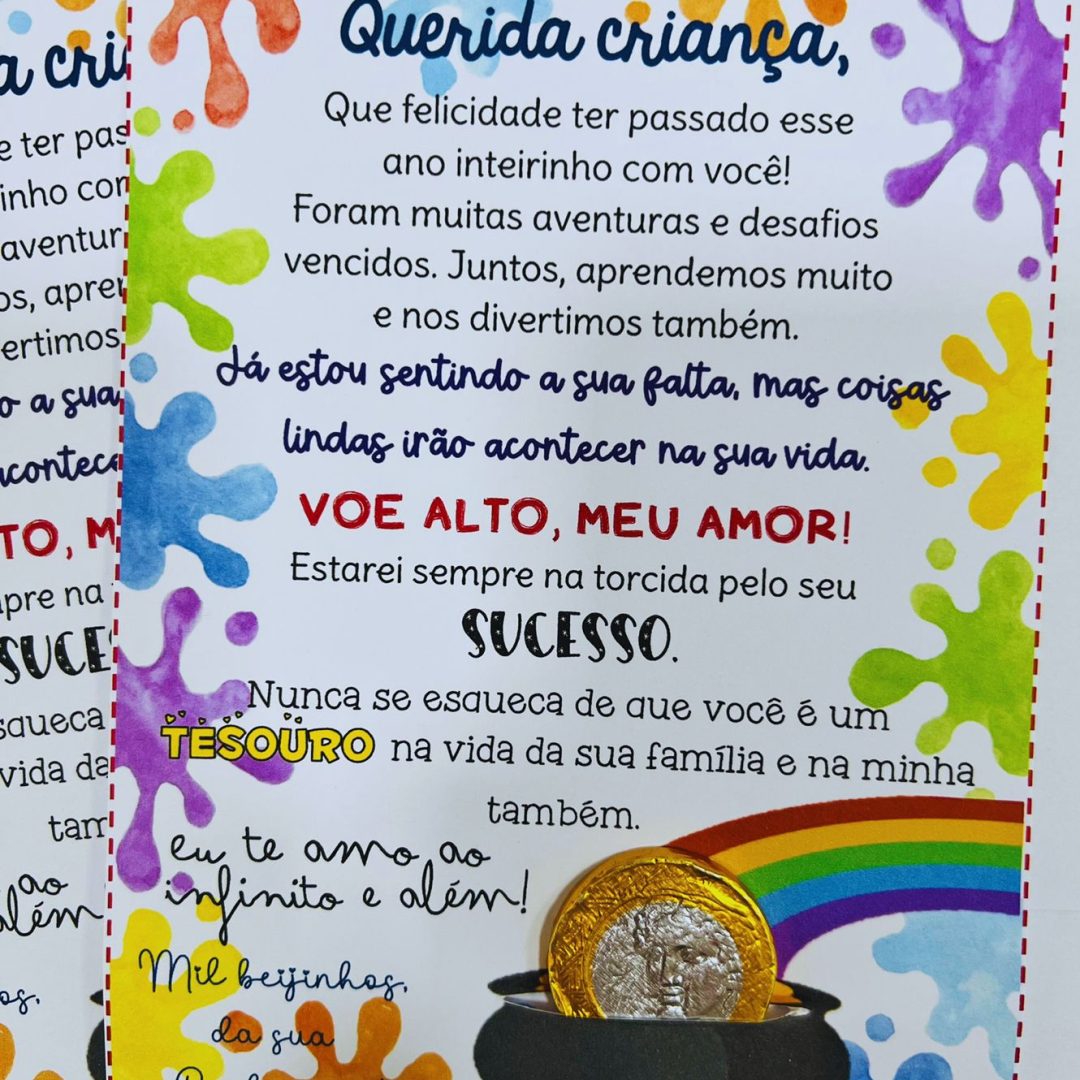 Querida criança,
Que felicidade ter passado esse
ano inteirinho com você!
Foram muitas aventuras e desafios
vencidos. Juntos, aprendemos muito
e nos divertimos também.
Já estou sentindo a sua falta, mas coisas
lindas irão acontecer na sua vida.
VOE ALTO, MEU AMOR!
Estarei sempre na torcida pelo seu
SUCESSO.
Nunca se esqueca de que você é um
TESOURO na vida da sua família e na minha
também.
eu te amo ao
infinito e além!
Mil beijinhos,
da sua